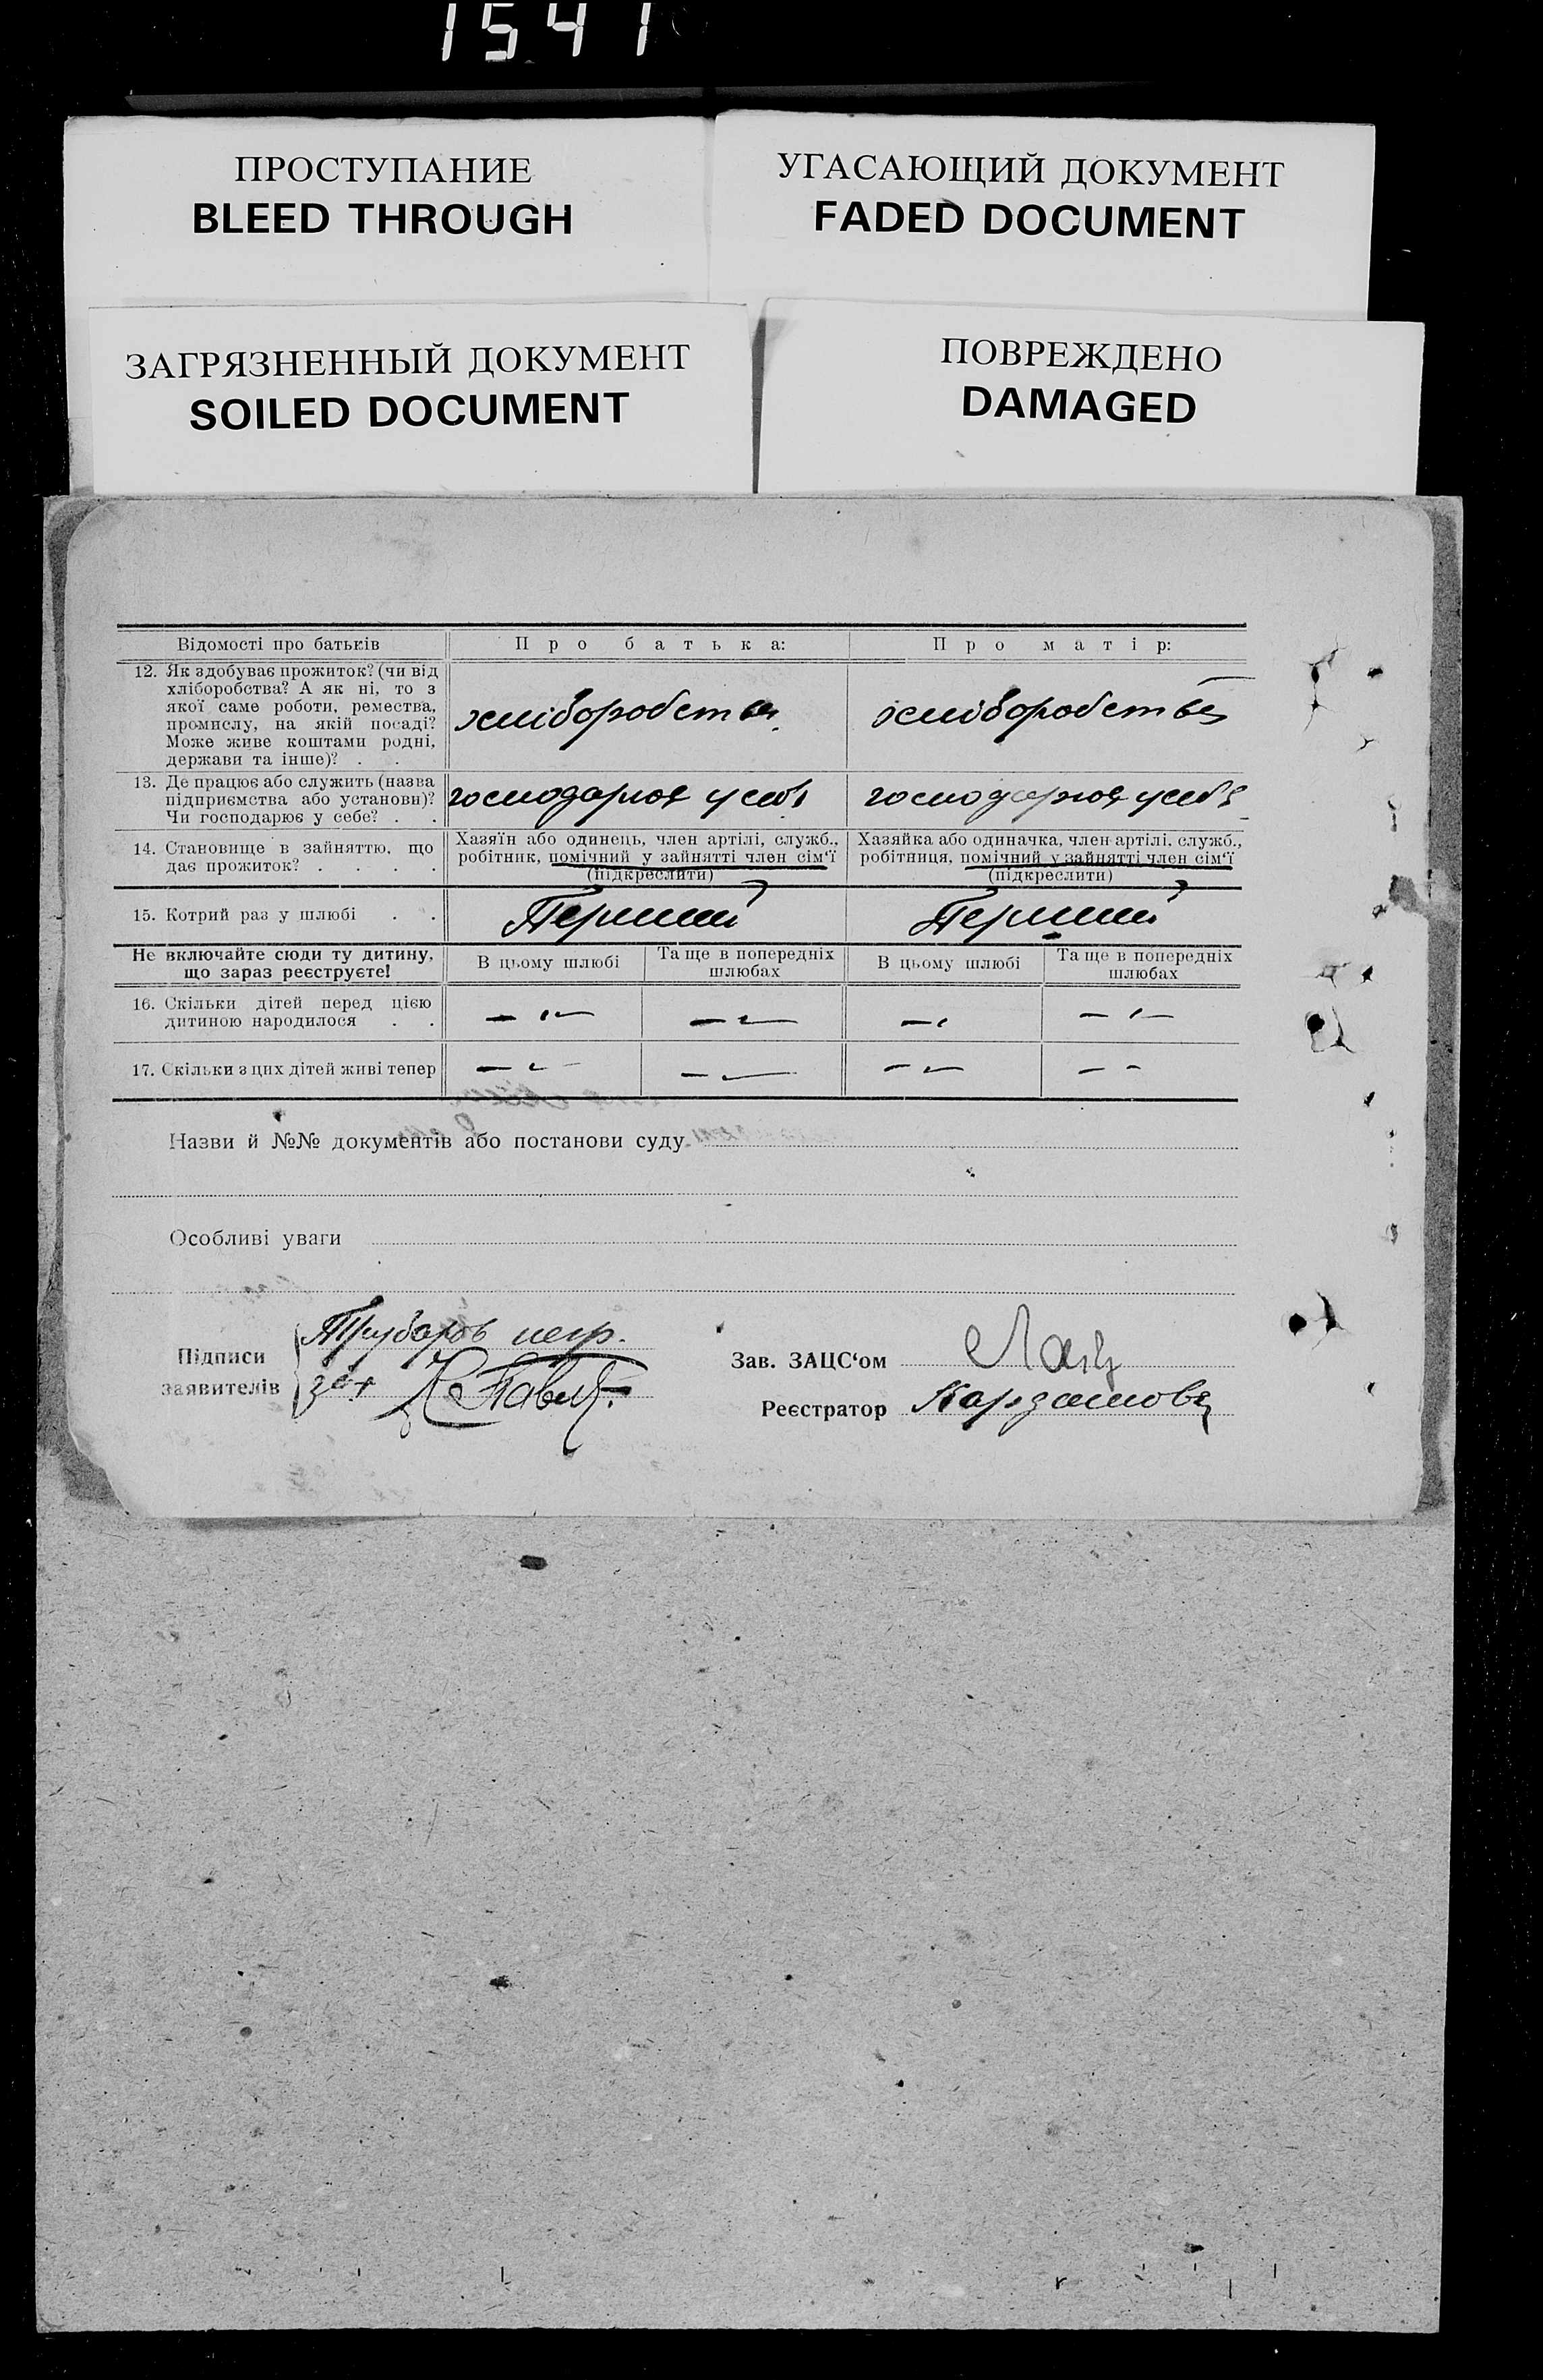 1541
ПРОСТУПАНИЕ
BLEED THROUGH
УГАСАЮЩИЙ ДОКУМЕНТ
FADED DOCUMENT
ЗАГРЯЗНЕННЫЙ ДОКУМЕНТ
SOILED DOCUMENT
ПОВРЕЖДЕНО
DAMAGED
Відомості про батьків
Про батька:
Про матір:
12. Як здобуває прожиток? (чи від
хліборобства? А як ні, то з
якої саме роботи, ремества,
промислу, на якій посаді?
Може живе коштами родні,
держави та інше)? . .
хліборобства
хліборобства
13. Де працює або служить (назва
підприємства або установи)?
Чи господарює у себе? . .
господарює у себе
господарює у себе
14. Становище в зайняттю, що
дає прожиток? . . . .
Хазяїн або одинець, член артілі, служб.,
робітник, помічний у зайнятті член сім‘ї
(підкреслити)
Хазяйка або одиначка, член артілі, служб.,
робітниця, помічний у зайнятті член сім‘ї
(підкреслити)
15. Котрий раз у шлюбі . .
Перший
Перший
Не включайте сюди ту дитину,
що зараз реєструєте!
В цьому шлюбі
Та ще в попередніх
шлюбах
В цьому шлюбі
Та ще в попередніх
шлюбах
16. Скільки дітей перед цією
дитиною народилося . .
17. Скільки з цих дітей живі тепер
Назви й №№ документів або постанови суду
Особливі уваги
Підписи
заявителів
Трубаров негр.
Зав. ЗАЦС‘ом
Реєстратор